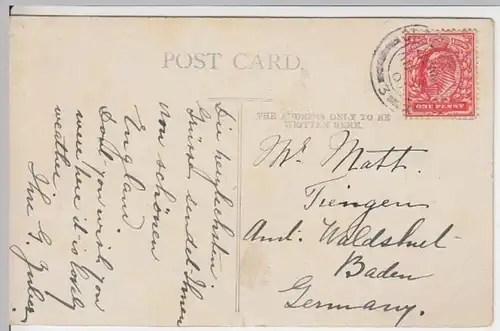 POST CARD.
THE ADDRESS ONLY TO BE
WRITTEN HERE.
ONE PENNY
Die herzlichsten
Grüsse sendet Ihnen
von schönen
England
Don't you wish you
were here it is lovely
weather.
Mr Matt.
Tiengen
Amt. Waldshut
Baden
Germany.